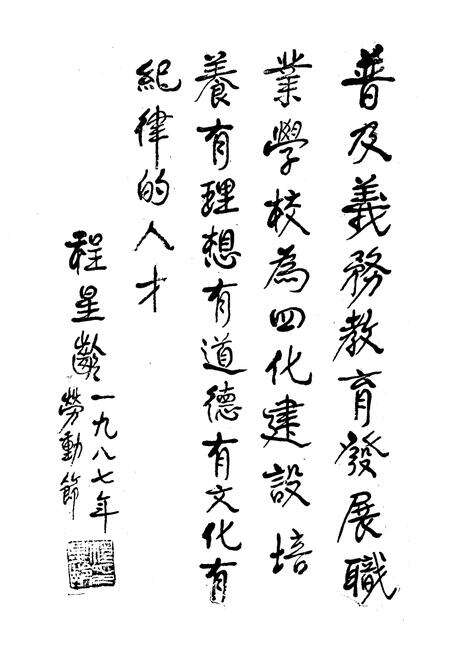 普及義務教育發展職
業學校為四化建設培
養有理想有道德有文化有
紀律的人才
程星齡一九八七年
勞動節